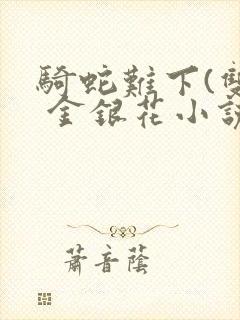 騎蛇難下(雙
金銀花小說
蕭音蔭